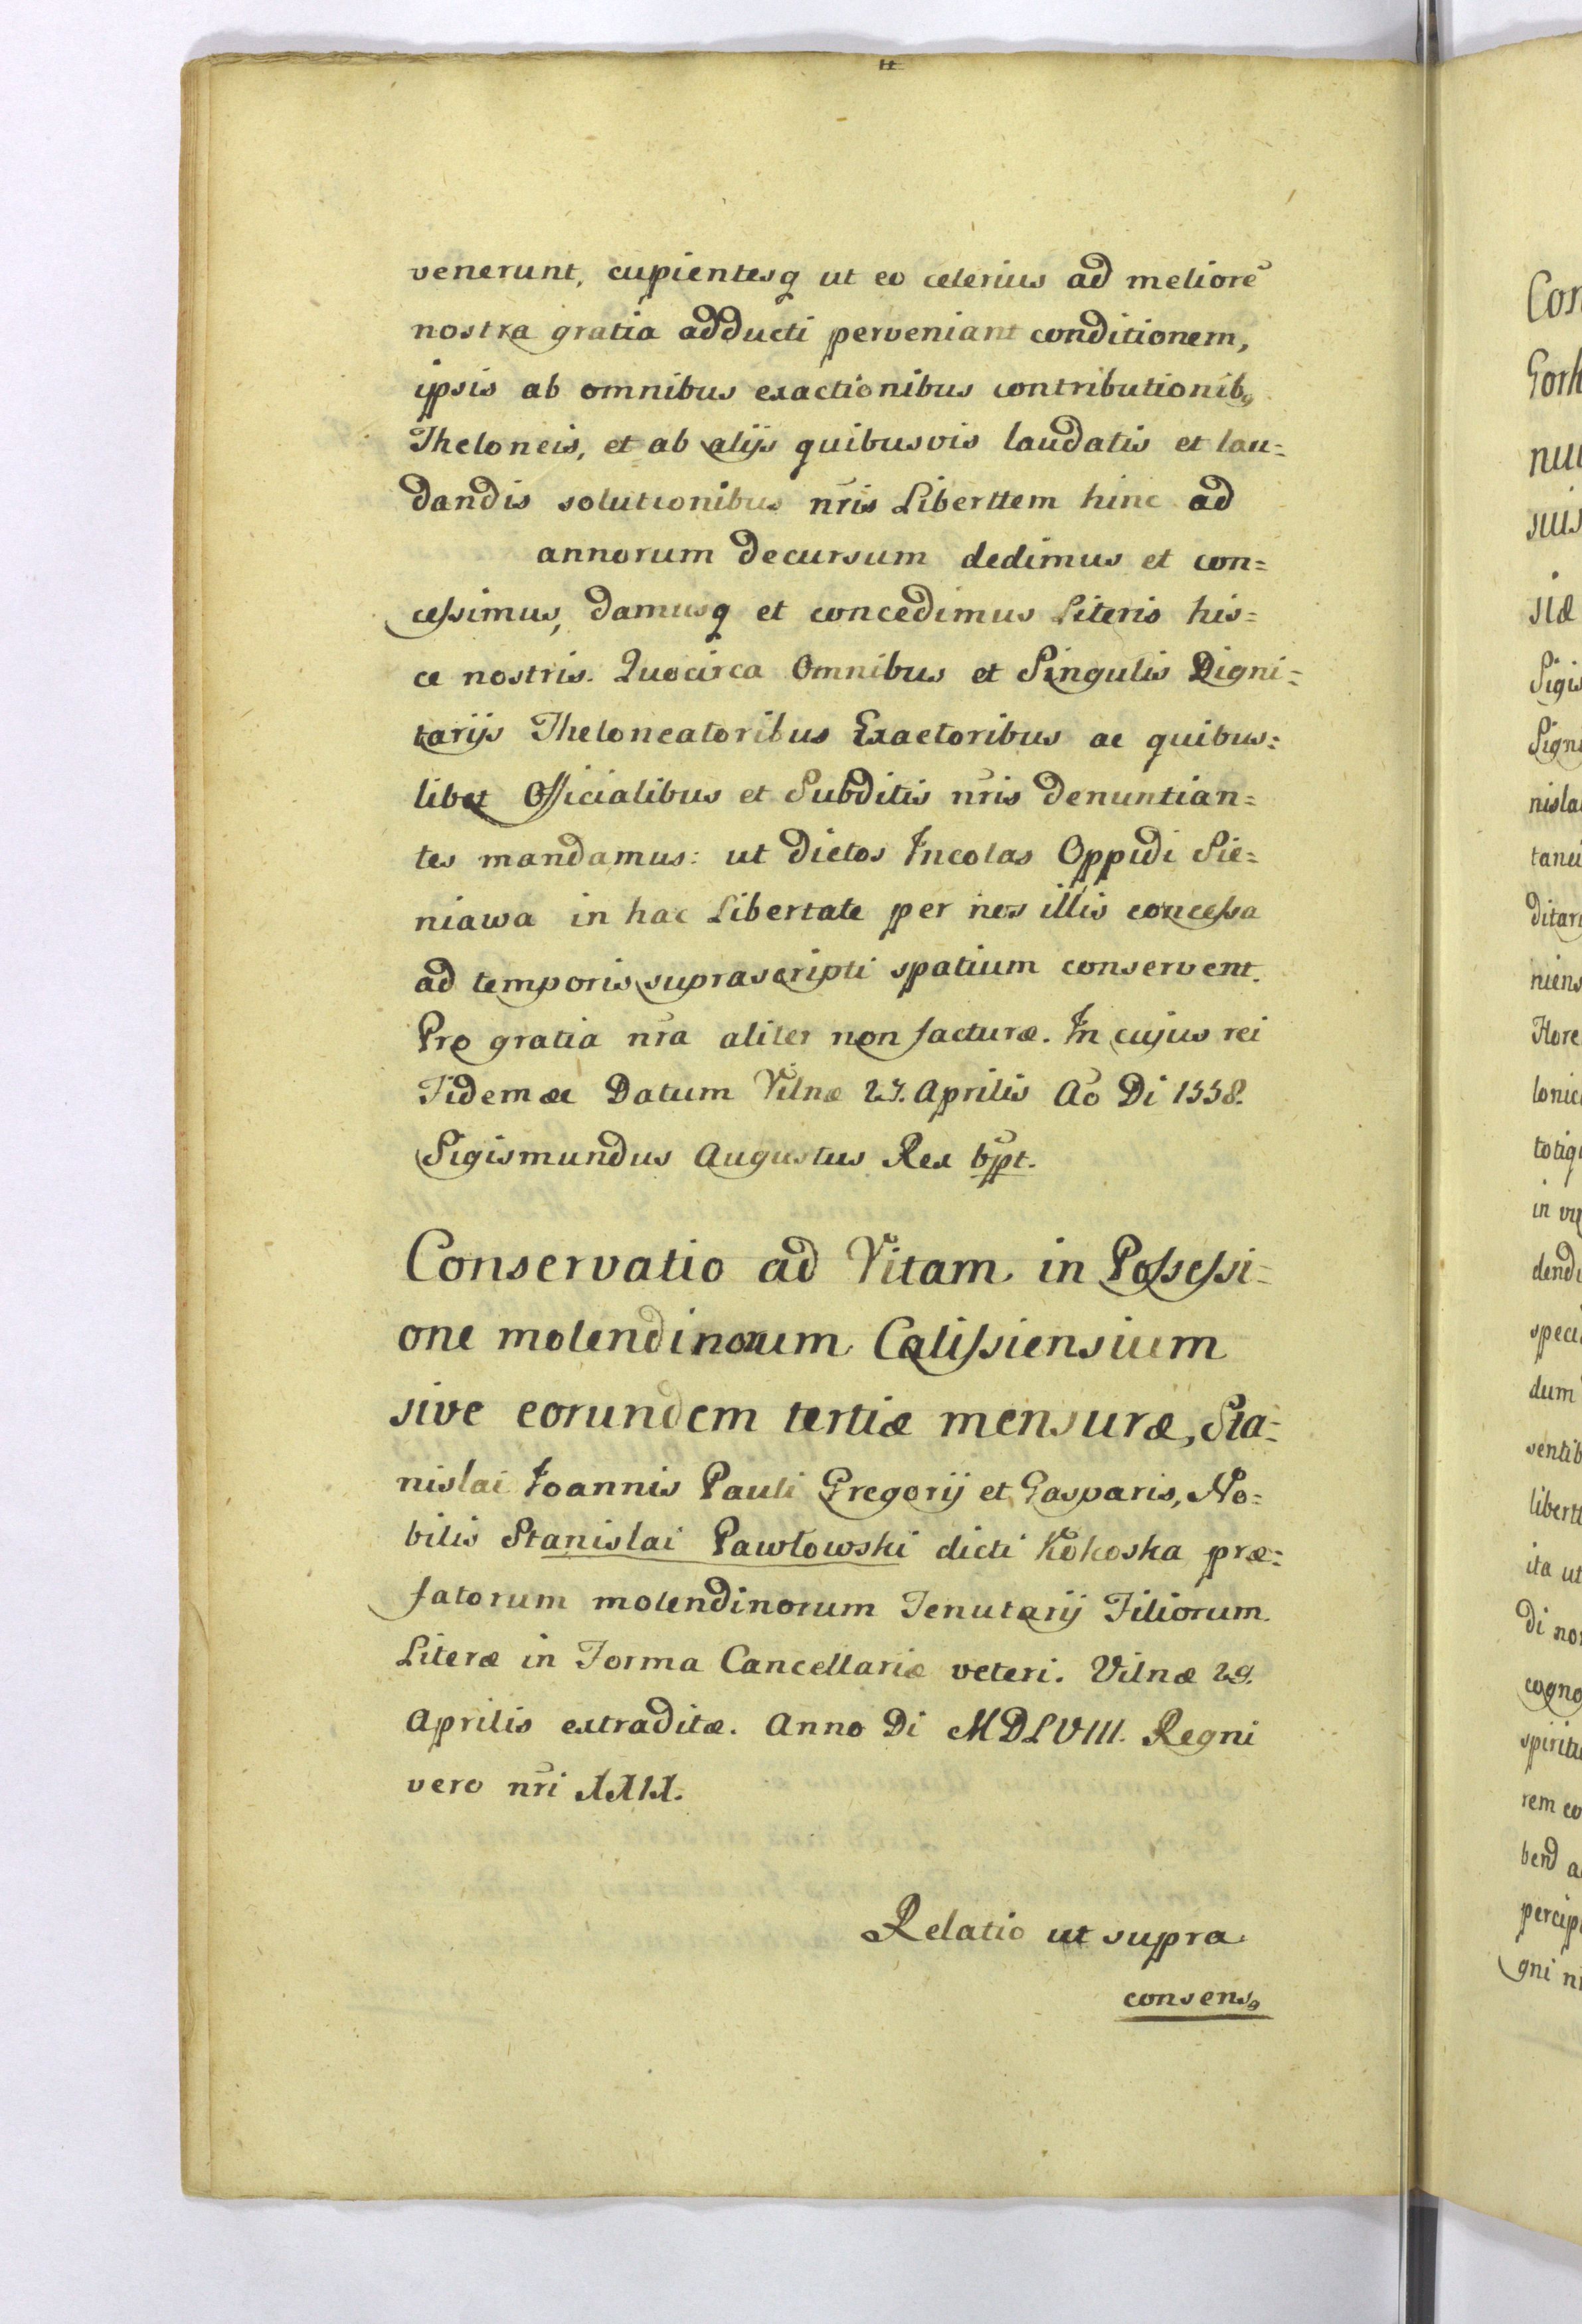 venerunt, cupientesq ut eo celerius ad meliorē
nostra gratia adducti perveniant conditionem,
ipsis ab omnibus exactionibus contributionibꝫ
Theloneis, et ab alijs quibusvis laudatis et lau=
dandis solutionibus nr̃is Liberttem hinc ad
annorum decursum dedimus et con=
cessimus, damusq et concedimus Literis his=
ce nostris. Quocirca Omnibus et Singulis Digni=
tarijs Theloneatoribus Exactoribus ac quibus=
libet Officialibus et Subditis nr̃is denuntian=
tes mandamus: ut dictos Incolas Oppidi Sie=
niawa in hac Libertate per nos illis concessa
ad temporis suprascripti spatium conservent.
Pro gratia nr̃a aliter non facturæ. In cujus rei
Fidem &c Datum Vilnæ 27. Aprilis Aõ Di 1558.
Sigismundus Augustus Rex sr̃pt.
Conservatio ad Vitam in Possessi=
one molendinorum Calissiensium
sive eorundem tertiæ mensuræ, Sta=
nislai Joannis Pauli Gregorij et Gasparis, No=
bilis Stanislai Pawłowski dicti Kokoska præ=
fatorum molendinorum Tenutarij Filiorum
Literæ in Forma Cancellariæ veteri. Vilnæ 29.
Aprilis extraditæ. Anno Di MDLVIII. Regni
vero nr̃i XXIX.
Relatio ut supra
consensꝫ